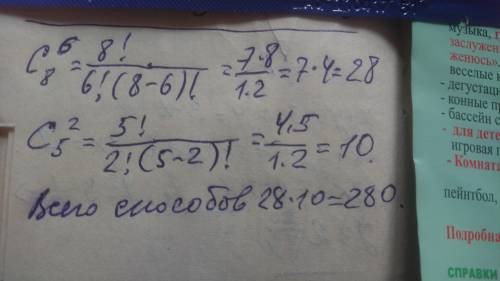 C₈⁶ = 8! / 6!(8-6)! = 7·8 / 1.2 = 7·4=28
C₅² = 5! / 2!(5-2)! = 4,5 / 1.2 = 10.
Всего способов 28·10=280.
музыка,
заслужен
женюсь».
веселые
- дегустаци
- конные пр
- бассейн с
- для дете
игровая
- Комната
пейнтбол,
Подробна
СПРАВКИ